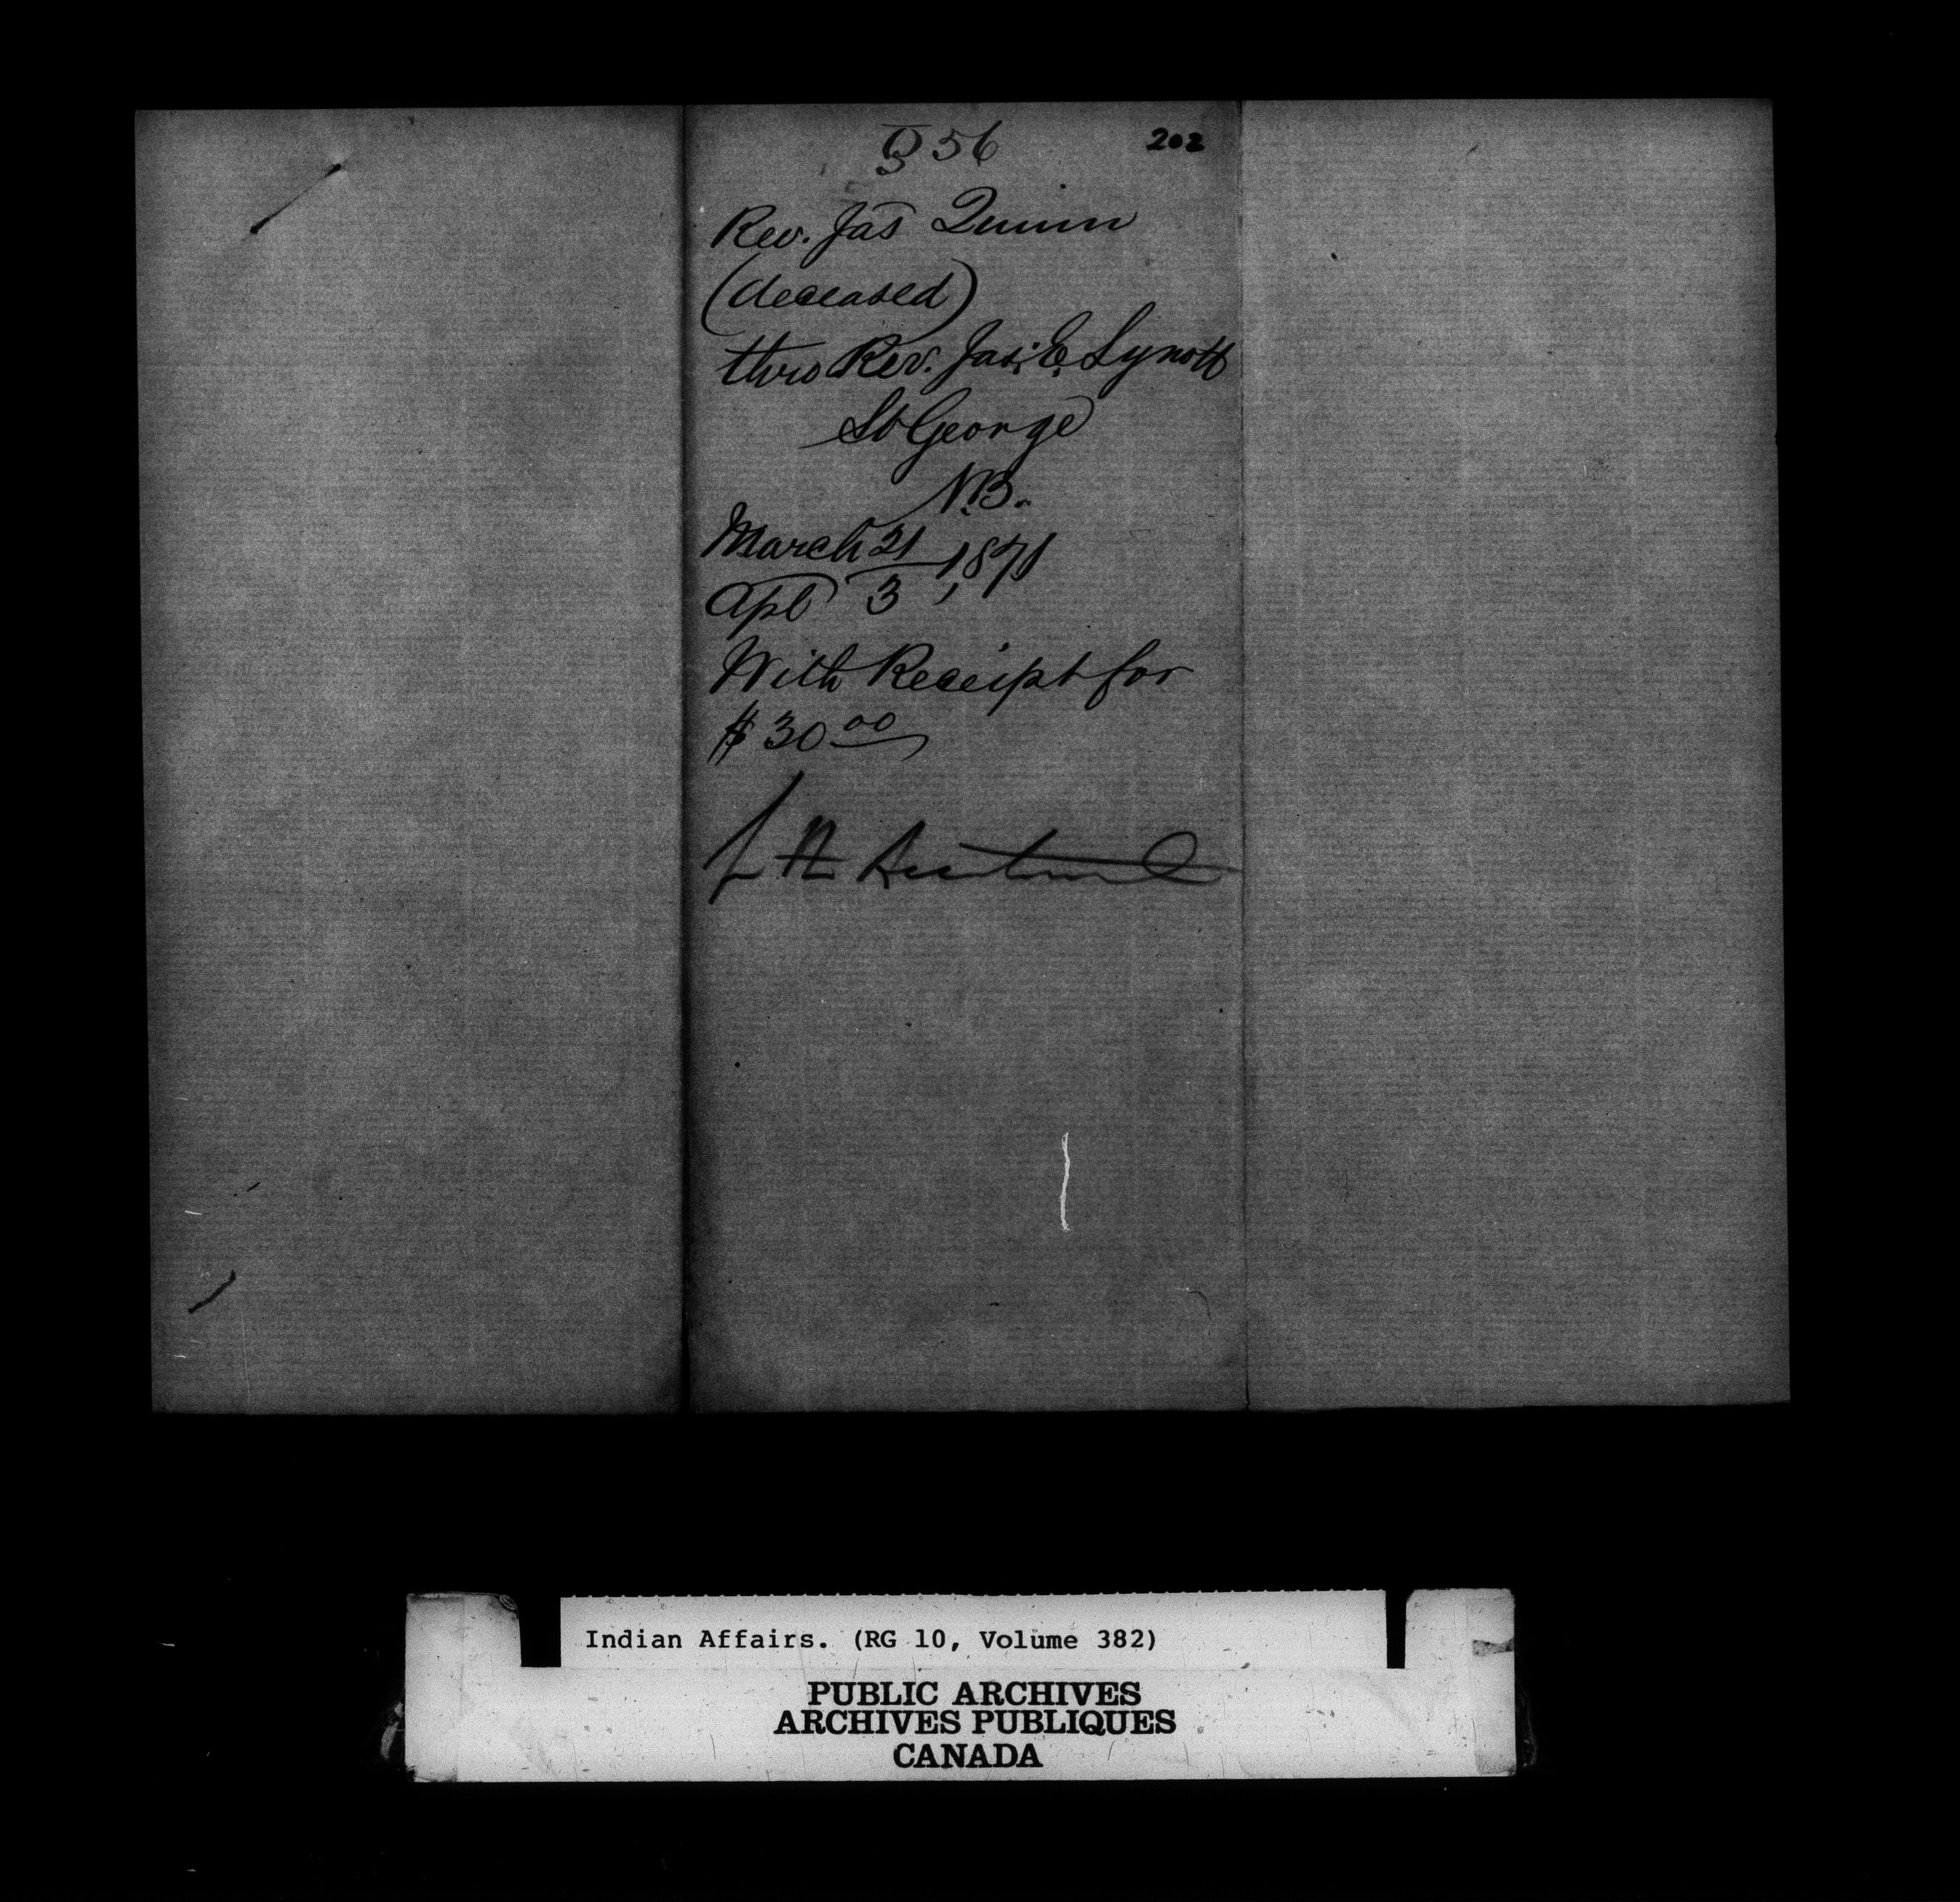 Q 56
202
Rev. Jas Quinn
(deceased)
thro Rev. Jas. E. Lynott
St George
N.B.
March 21
Apl 3, 1871
With Receipt for
$30.00
Indian Affairs. (RG 10, Volume 382)
PUBLIC ARCHIVES
ARCHIVES PUBLIQUES
CANADA